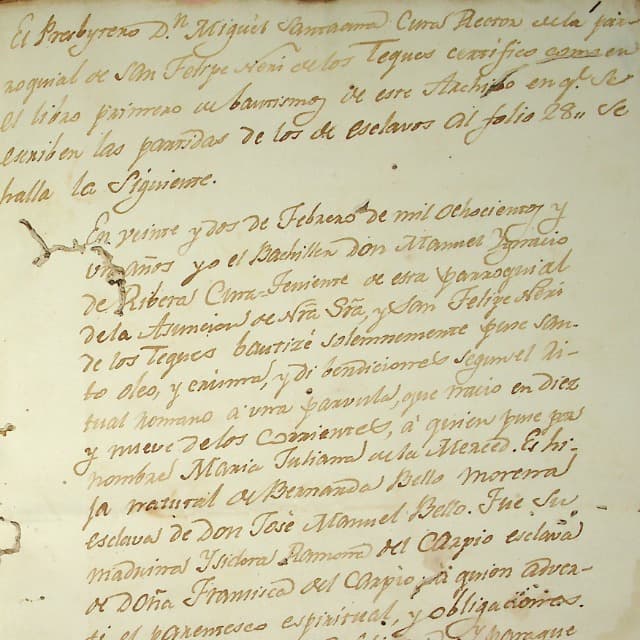 El Presbytero D.n Miguèl Santana Cura Rector de la par-
roquial de San Felipe Neri de los Teques certifico como en
el libro primero de bautismos de este Archibo en q.e se
escriben las partidas de los de esclavos al folio 28,, se
halla la siguiente.
En veinte y dos de Febrero de mil ochocientos y
un años yo el Bachiller don Manuel Ygnacio
de Ribera Cura-Teniente de esta parroquial
de la Asuncion de Nrã Srã, y San Felipe Neri
de los Teques bautizé solemnemente puse san-
to oleo, y crisma, y di bendiciones segun el Ri-
tual romano à una parvula, que nacio en diez
y nueve de los corrientes, à quien puse por
nombre Maria Juliana de la Merced. Es hi-
ja natural de Bernarda Bello morena
esclava de Don José Manuel Bello. Fue su
madrina Ysidora Ramona del Carpio esclava
de Doña Francisca del Carpio, à quien adver-
ti el parentesco espiritual, y obligaciones.